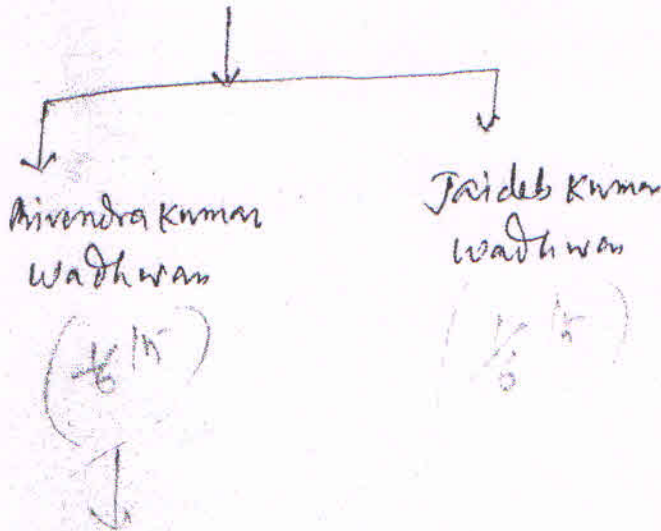 Birendra Kumar
Wadhwan
Jaideb Kumar
Wadhwan
(1/6 th)
(1/6 th)